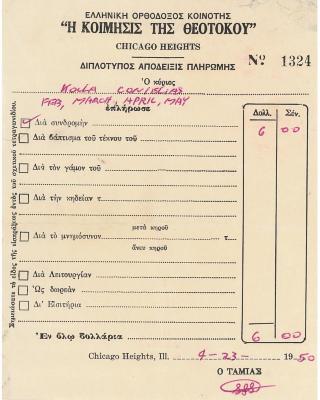 ΕΛΛΗΝΙΚΗ ΟΡΘΟΔΟΞΟΣ ΚΟΙΝΟΤΗΣ
"Η ΚΟΙΜΗΣΙΣ ΤΗΣ ΘΕΟΤΟΚΟΥ"
CHICAGO HEIGHTS
ΔΙΠΛΟΤΥΠΟΣ ΑΠΟΔΕΙΞΙΣ ΠΛΗΡΩΜΗΣ
Nº 1324
Ὁ κύριος
FEB, MARCH, APRIL, MAY
ἐπλήρωσε
Δολλ. Σέν.
Διὰ συνδρομὴν 6 00
Διὰ βάπτισμα τοῦ τέκνου τοῦ
Διὰ τὸν γάμον τοῦ
Διὰ τὴν κηδείαν τ
μετὰ κηροῦ
Διὰ τὸ μνημόσυνον τ
ἄνευ κηροῦ
Διὰ Λειτουργίαν
Ὡς δωρεὰν
Δι' Εἰσιτήρια
Σημειώσατε τὸ εἶδος τῆς εἰσπράξεως ἐντὸς τοῦ σχετικοῦ τετραγωνιδίου.
Ἐν ὅλῳ δολλάρια 6 00
Chicago Heights, Ill. 4-23- 1950
Ο ΤΑΜΙΑΣ